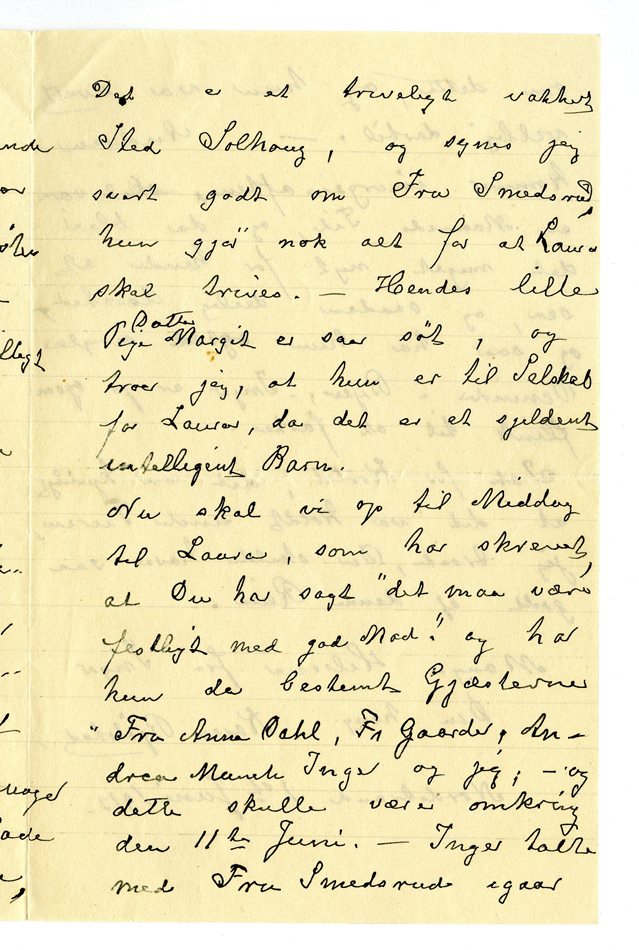 Det er et triveligt vakkert
Sted Solhaug, og synes jeg
svært godt om Fru Smedsrud,
hun gjør nok alt for at Laura
skal trives. — Hendes lille
Datter
Pige Margit er saa söt, og
troer jeg, at hun er til Selskab
for Laura, da det er et sjeldent
intelligent Barn.
Nu skal vi op til Middag
til Laura, som har skrevet,
at Du har sagt "det maa være
festligt med god Mad." og har
hun da bestemt Gjæsterne
"Fru Anna Dahl, Fr Gaarder, An-
drea Munch Inger og jeg; — og
dette skulle være omkring
den 11te Juni. — Inger talte
med Fru Smedsrud igaar
nde
megt
ade